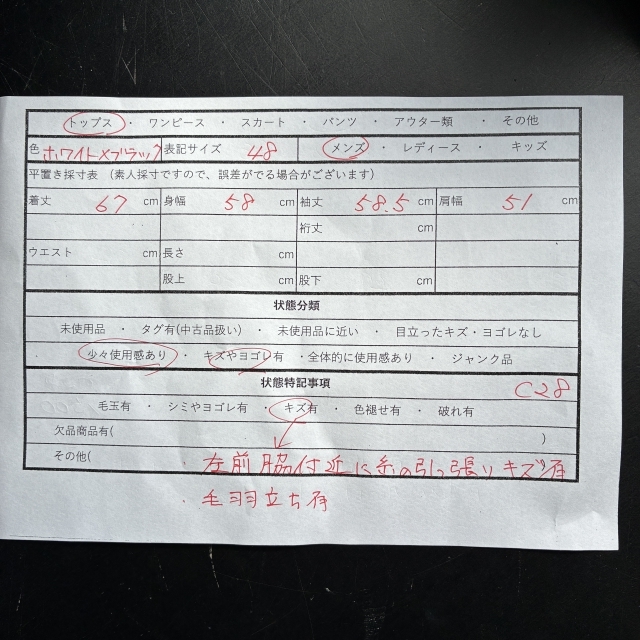 トップス ・ ワンピース ・ スカート ・ パンツ ・ アウター類 ・ その他
色 ホワイト×ブラック 表記サイズ 48 メンズ ・ レディース ・ キッズ
平置き採寸表 (素人採寸ですので、誤差がでる場合がございます)
着丈 67 cm 身幅 58 cm 袖丈 58.5 cm 肩幅 51 cm
裄丈 cm
ウエスト cm 長さ cm
股上 cm 股下 cm
状態分類
未使用品 ・ タグ有(中古品扱い) ・ 未使用品に近い ・ 目立ったキズ・ヨゴレなし
少々使用感あり ・ キズやヨゴレ有 ・全体的に使用感あり ・ ジャンク品
状態特記事項 C28
毛玉有 ・ シミやヨゴレ有 ・ キズ有 ・ 色褪せ有 ・ 破れ有
欠品商品有( )
その他( 左前脇付近に糸の引っ張りキズ有
毛羽立ち有